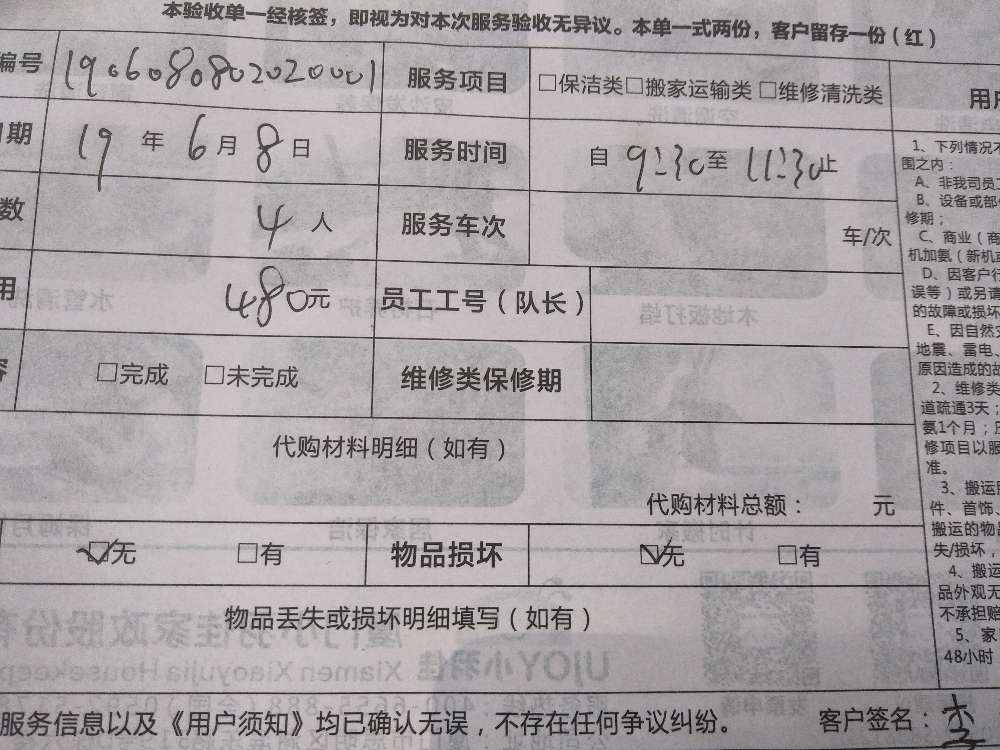 本验收单一经核签，即视为对本次服务验收无异议。本单一式两份，客户留存一份（红）
编号 19060808020200001 服务项目 □保洁类□搬家运输类 □维修清洗类
日期 19 年 6 月 8 日 服务时间 自 9:30 至 11:30 止
数 4 人 服务车次 车/次
用 480 元 员工工号（队长）
容 □完成 □未完成 维修类保修期
代购材料明细（如有）
代购材料总额： 元
☑无 □有 物品损坏 ☑无 □有
物品丢失或损坏明细填写（如有）
服务信息以及《用户须知》均已确认无误，不存在任何争议纠纷。 客户签名：李
用户
1、下列情况不
围之内：
A、非我司员工
B、设备或部件
修期；
C、商业（商
机加氨（新机或
D、因客户行
误等）或另请
的故障或损坏
E、因自然灾
地震、雷电、
原因造成的故
2、维修类
道疏通3天；
氨1个月；
修项目以服
准。
3、搬运
件、首饰、
搬运的物品
失/损坏，
4、搬运
品外观无
不承担赔
5、家
48小时